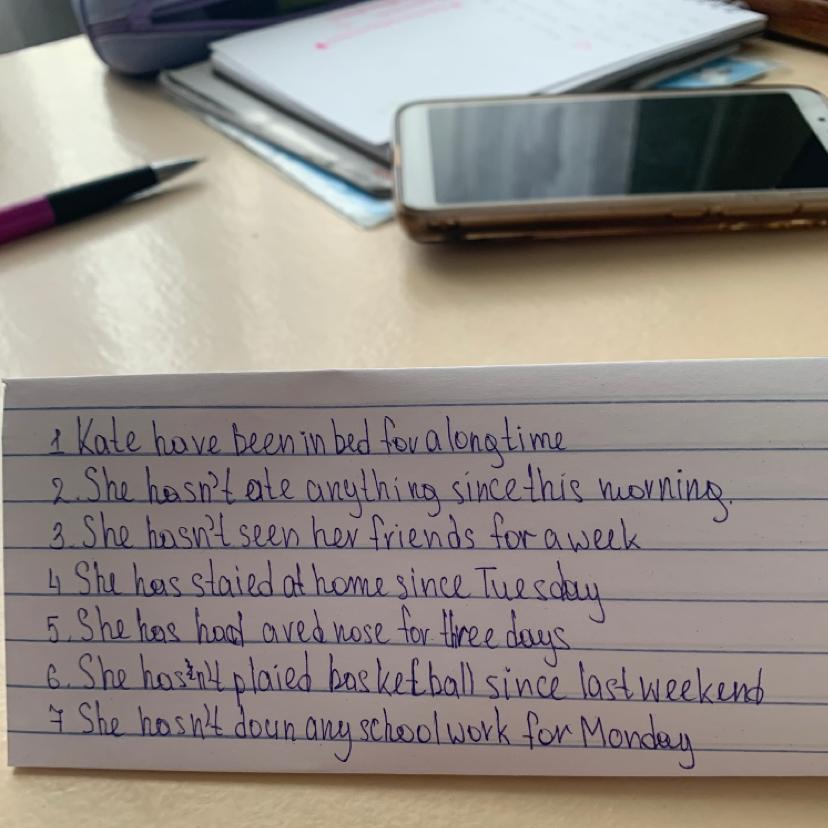 1 Kate have been in bed for a long time
2. She hasn't ate anything since this morning.
3. She hasn't seen her friends for a week
4 She has staied at home since Tuesday
5. She has had a red nose for three days
6. She hasn't plaied basketball since last weekend
7 She hasn't doun any schoolwork for Monday